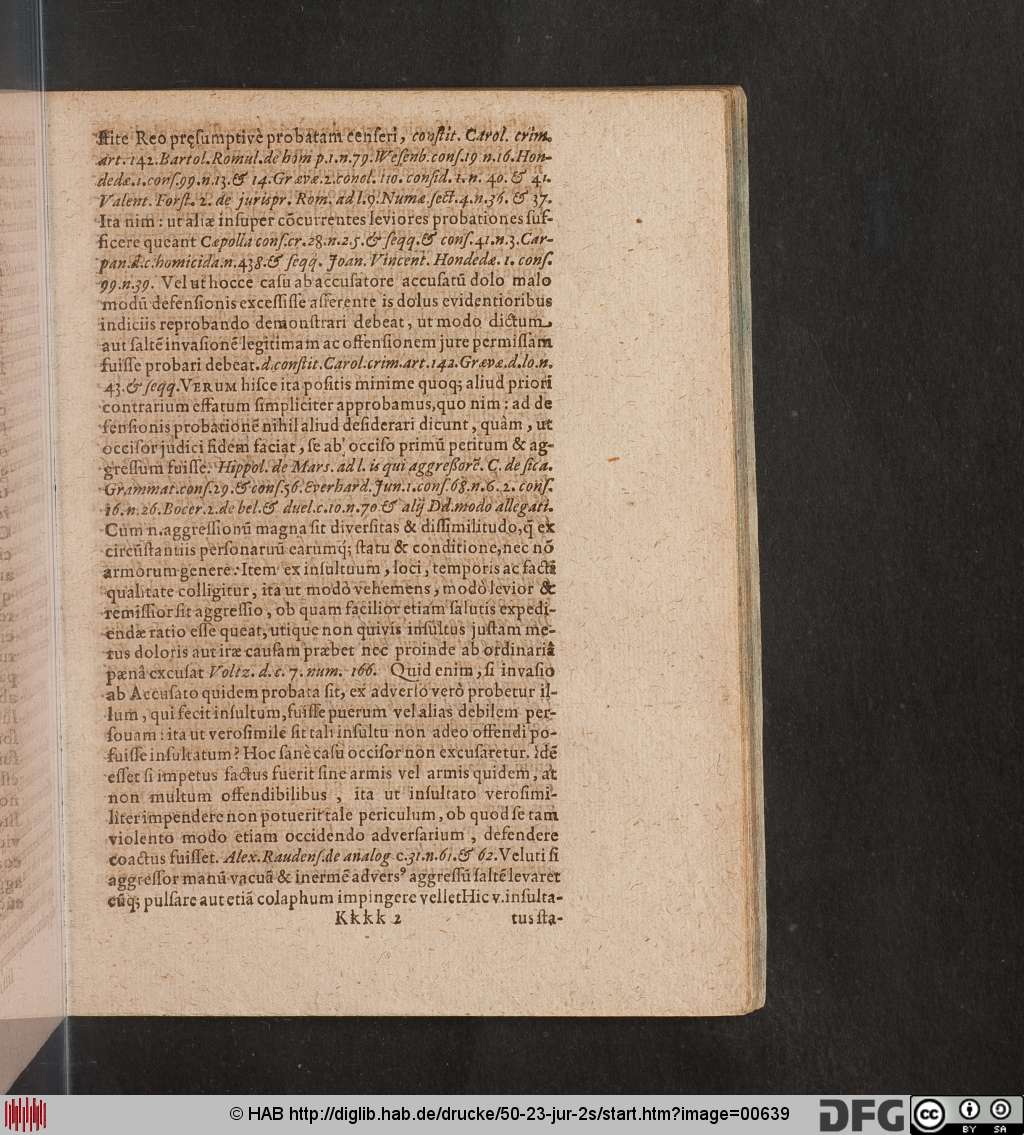 ſtite Reo pręſumptivè probatam cenſeri, conſtit. Carol. crim.
art. 142. Bartol. Romul. de hom p. 1. n. 79. Weſenb. conſ. 19 n. 16. Hon-
dedæ. 1. conſ. 99. n. 13. & 14. Grævæ. 2. concl. 110. conſid. 1. n. 40. & 41.
Valent. Forſt. 2. de jurispr. Rom. ad l. 9. Numæ ſect. 4. n. 36. & 37.
Ita nim: ut aliæ inſuper cōcurrentes leviores probationes ſuf-
ficere queant Cæpolla conſ. cr. 28. n. 2. 5. & ſeqq. & conſ. 41. n. 3. Car-
pan. d. c. homicida. n. 438. & ſeqq. Joan. Vincent. Hondedæ. 1. conſ.
99. n. 39. Vel ut hocce caſu ab accuſatore accuſatū dolo malo
modū defenſionis exceſſiſſe aſſerente is dolus evidentioribus
indiciis reprobando demonſtrari debeat, ut modo dictum.
aut ſaltē invaſionē legitimam ac offenſionem jure permiſſam
fuiſſe probari debeat. d. conſtit. Carol. crim. art. 142. Grævæ. d. lo. n.
43. & ſeqq. VERUM hiſce ita poſitis minime quoq; aliud priori
contrarium effatum ſimpliciter approbamus, quo nim: ad de
fenſionis probationē nihil aliud deſiderari dicunt, quàm, ut
occiſor judici fidem faciat, ſe ab occiſo primū petitum & ag-
greſſum fuiſſe. Hippol. de Mars. ad l. is qui aggreßorē. C. de ſica.
Grammat. conſ. 29. & conſ. 56. Everhard. Jun. 1. conſ. 68. n. 6. 2. conſ.
16. n. 26. Bocer. 2. de bel. & duel. c. 10. n. 70 & alij Dd. modo allegati.
Cum n. aggreſſionū magna ſit diverſitas & diſſimilitudo, q̃ ex
circūſtantiis perſonaruū earumq́; ſtatu & conditione, nec nō
armorum genere: Item ex inſultuum, loci, temporis ac facti
qualitate colligitur, ita ut modò vehemens, modò levior &
remiſſior ſit aggreſſio, ob quam facilior etiam ſalutis expedi-
endæ ratio eſſe queat, utique non quivis inſultus juſtam me-
tus doloris aut iræ cauſam præbet nec proinde ab ordinariâ
pænâ excuſat Voltz. d. c. 7. num. 166. Quid enim, ſi invaſio
ab Accuſato quidem probata ſit, ex adverſo verò probetur il-
lum, qui fecit inſultum, fuiſſe puerum vel alias debilem per-
ſouam: ita ut veroſimile ſit tali inſultu non adeo offendi po-
fuiſſe inſultatum? Hoc ſanè caſu occiſor non excuſaretur. Idē
eſſet ſi impetus factus fuerit ſine armis vel armis quidem, at
non multum offendibilibus, ita ut inſultato veroſimi-
liter impendere non potuerit tale periculum, ob quod ſe tam
violento modo etiam occidendo adverſarium, defendere
coactus fuiſſet. Alex. Raudenſ. de analog c. 31. n. 61. & 62. Veluti ſi
aggreſſor manū vacuā & inermē adversꝰ aggreſſū ſaltē levaret
eūq; pulſare aut etiā colaphum impingere vellet Hic v. inſulta-
Kkkk 2 tus ſta-
© HAB http://diglib.hab.de/drucke/50-23-jur-2s/start.htm?image=00639
DFG cc BY SA